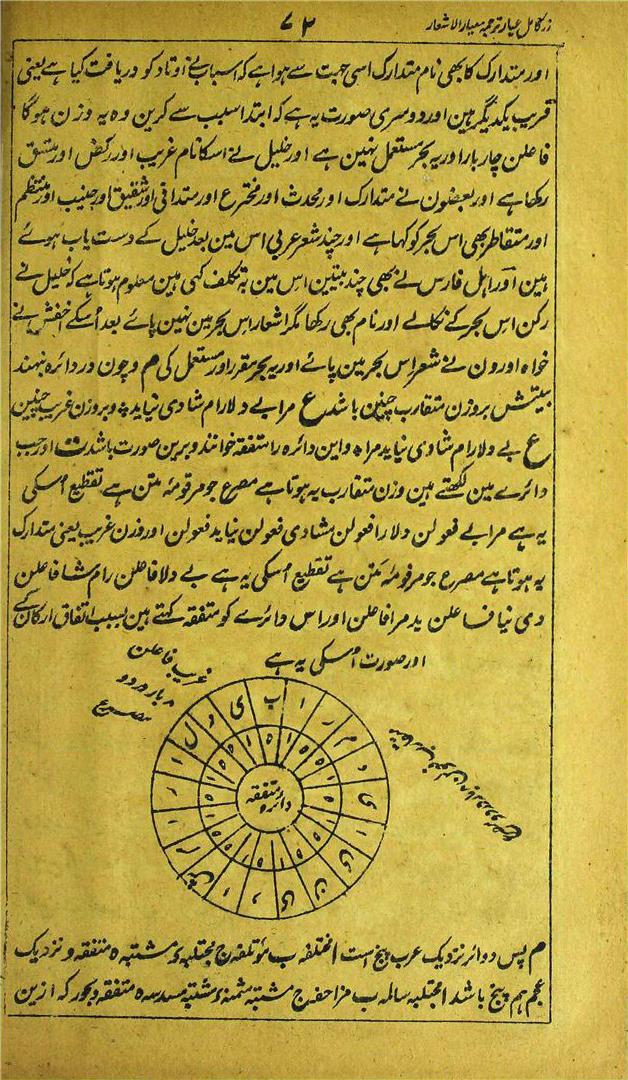 زر کامل عیار ترجمہ معیار الاشعار
۷۲
اور متدارک کا بھی نام متدارک اسی جہت سے ہوا ہے کہ اسباب نے اوتاد کو دریافت کیا ہے یعنی
قریب یکدیگر ہین اور دوسری صورت یہ ہے کہ ابتدا سبب سے کرین وہ یہ وزن ہوگا
فاعلن چار بار اور یہ بحر مستعمل نہین ہے اور خلیل نے اسکا نام غریب اور رکض اور متسق
رکھا ہے اور بعضون نے متدارک اور محدث اور مخترع اور متدافی اور شقیق اور جنیب اور منتظم
اور متقاطر بھی اس بحر کو کہا ہے اور چند شعر عربی اس مین بعد خلیل کے دست یاب ہوئے
ہین اور اہل فارس نے بھی چند بیتین اس مین بہ تکلف کہی ہین معلوم ہوتا ہے کہ خلیل نے
رکن اس بحر کے نکالے اور نام بھی رکھا مگر اشعار اس بحر مین نہین پائے بعد اُسکے اخفش نے
خواہ اورون نے شعر اس بحر مین پائے اور یہ بحر مقرر اور مستعمل کی م و چون در دائرہ نہند
بیتش بروزن متقارب چنین باشد ع مرا بے دلارام شادی نیاید و بروزن غریب چنین
ع بے دلارام شادی نیاید مرا و این دائرہ را متفقہ خوانند و برین صورت باشد ت اور جب
دائرے مین لکھتے ہین وزن متقارب یہ ہوتا ہے مصرع جو مرقومۂ متن ہے تقطیع اُسکی
یہ ہے مرا بے فعولن دلارا فعولن مشادی فعولن نیاید فعولن اور وزن غریب یعنی متدارک
یہ ہوتا ہے مصرع جو مرقومۂ متن ہے تقطیع اُسکی یہ ہے بے دلا فاعلن رام شا فاعلن
دی نیا فاعلن ید مرا فاعلن اور اس دائرے کو متفقہ کہتے ہین بسبب اتفاق ارکان کے
اور صورت اُسکی یہ ہے
غریب فاعلن
۸ بار دو
مصرع
دائرہ متفقہ
م پس دوائر نزدیک عرب پنج است ا مختلفہ ب مؤتلفہ ج مجتلبہ د مشتبہ ہ متفقہ و نزدیک
عجم ہم پنج باشد ا مجتلبہ سالمہ ب مزاحفہ ج مشتبہ مثمنہ د مشتبہ مسدسہ ہ متفقہ و بحور کہ ازین